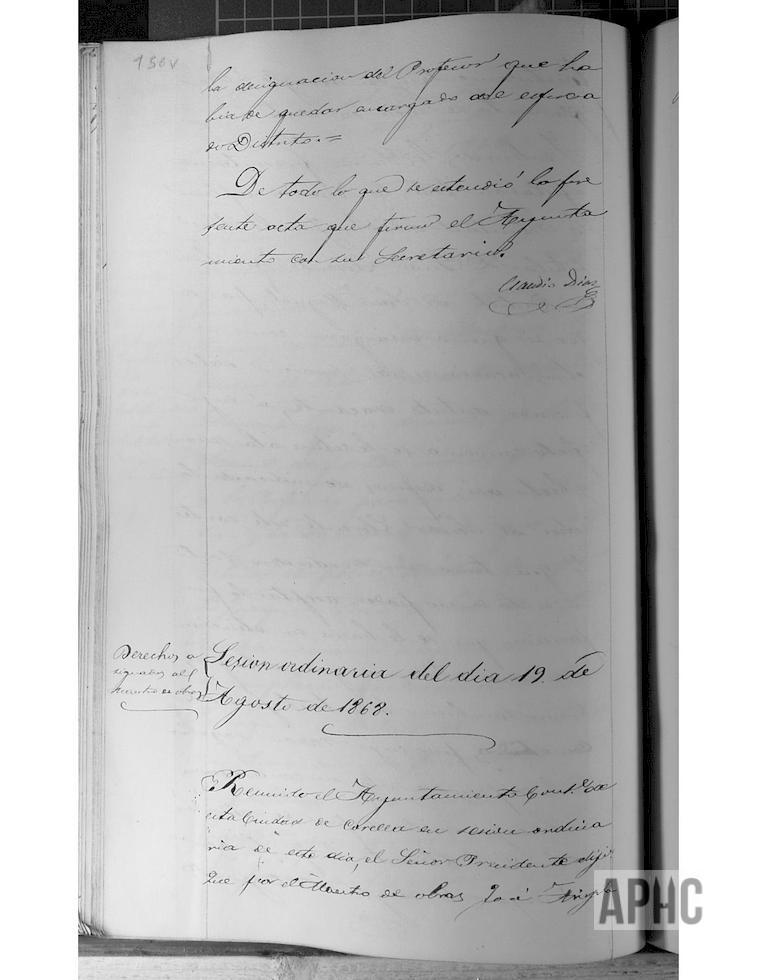 156v
la designacion del Profesor que ha
bia de quedar encargado de el espresa
do Distrito.=
De todo lo que se estendió la pre
sente acta que firma el Ayunta
miento con su Secretario.
Claudio Diaz
Derechos a
signados al
Maestro de obras
Sesion ordinaria del dia 19. de
Agosto de 1868.
Reunido el Ayuntamiento Const.l de
esta Ciudad de Corella en sesion ordina
ria de este dia, el Señor Presidente dijo
Que por el Maestro de obras
APHC